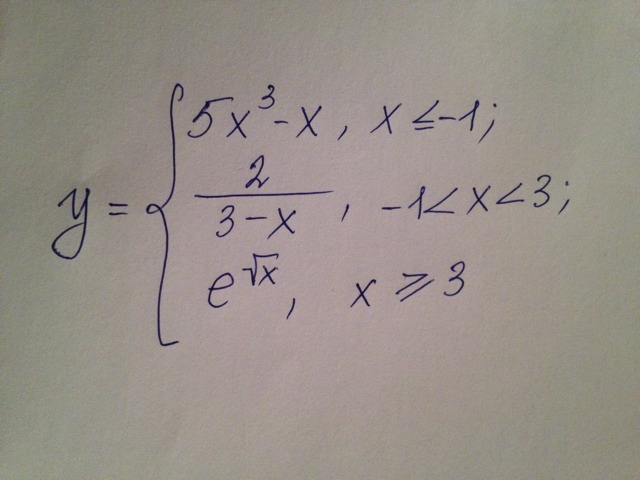 y = { 5x³-x, x ≤ -1;
2/(3-x), -1<x<3;
e^√x, x ⩾ 3